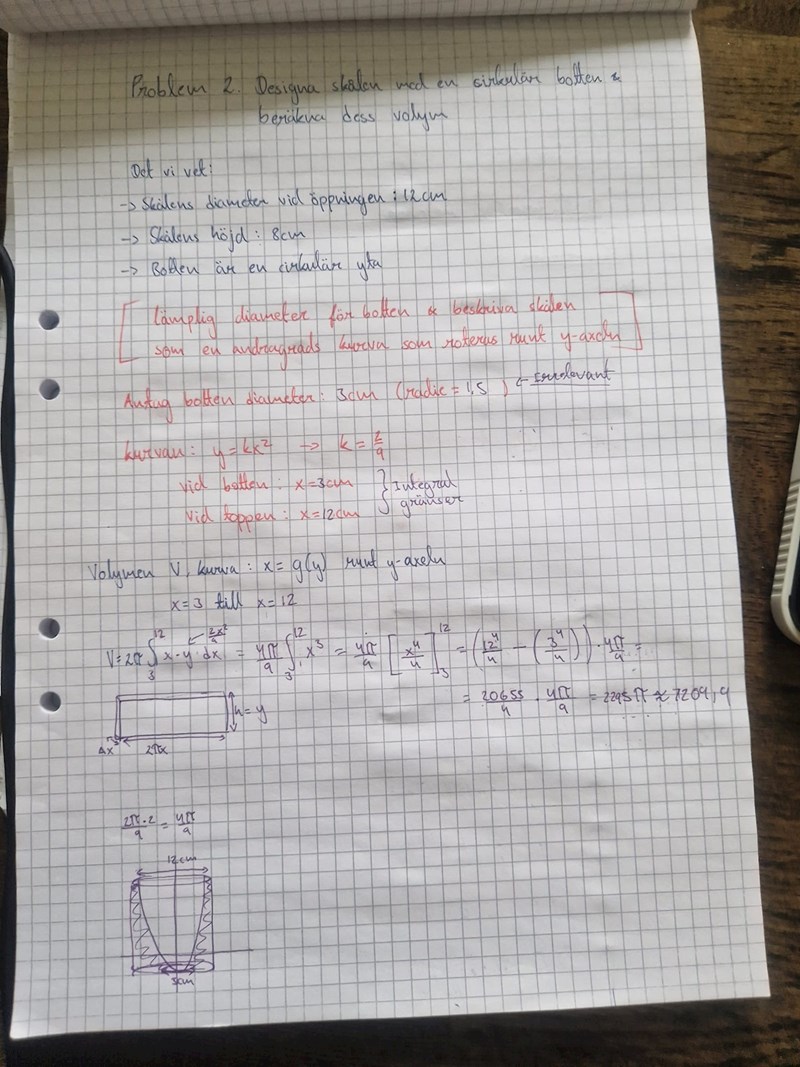 Problem 2. Designa skålen med en cirkulär botten &
beräkna dess volym
Det vi vet:
-> Skålens diameter vid öppningen : 12cm
-> Skålens höjd : 8cm
-> Botten är en cirkulär yta
[ lämplig diameter för botten & beskriva skålen
som en andragrads kurva som roteras runt y-axeln ]
Antag botten diameter: 3cm (radie = 1,5) <- Irrelevant
kurvan: y = kx² -> k = 2/9
vid botten : x = 3cm } Integral
vid toppen : x = 12cm gränser
Volymen V, kurva : x = g(y) runt y-axeln
x = 3 till x = 12
V = 2π ∫₃¹² x · y · dx = 4π/9 ∫₃¹² x³ = 4π/9 [x⁴/4]₃¹² = (12⁴/4 - (3⁴/4)) · 4π/9 =
2x²/9
= 20655/4 · 4π/9 = 2295π ≈ 7209,9
h = y
Δx 2πx
2π·2/9 = 4π/9
12cm
3cm